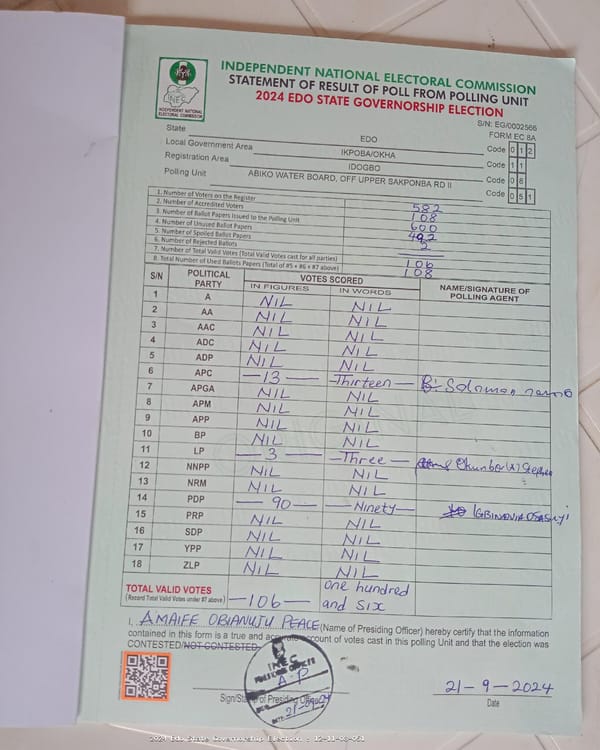 INDEPENDENT NATIONAL ELECTORAL COMMISSION
STATEMENT OF RESULT OF POLL FROM POLLING UNIT
2024 EDO STATE GOVERNORSHIP ELECTION
INEC
INDEPENDENT NATIONAL
ELECTORAL COMMISSION
S/N: EG/0002566
FORM EC 8A
State EDO Code 0 1 2
Local Government Area IKPOBA/OKHA Code 1 1
Registration Area IDOGBO Code 0 8
Polling Unit ABIKO WATER BOARD, OFF UPPER SAKPONBA RD II Code 0 5 1
1. Number of Voters on the Register 582
2. Number of Accredited Voters 108
3. Number of Ballot Papers Issued to the Polling Unit 600
4. Number of Unused Ballot Papers 492
5. Number of Spoiled Ballot Papers
6. Number of Rejected Ballots
7. Number of Total Valid Votes (Total Valid Votes cast for all parties) 106
8. Total Number of Used Ballots Papers (Total of #5 + #6 + #7 above) 108
S/N POLITICAL PARTY VOTES SCORED NAME/SIGNATURE OF POLLING AGENT
IN FIGURES IN WORDS
1 A NIL NIL
2 AA NIL NIL
3 AAC NIL NIL
4 ADC NIL NIL
5 ADP NIL NIL
6 APC 13 Thirteen Solomon
7 APGA NIL NIL
8 APM NIL NIL
9 APP NIL NIL
10 BP NIL NIL
11 LP 3 Three
12 NNPP NIL NIL
13 NRM NIL NIL
14 PDP 90 Ninety
15 PRP NIL NIL
16 SDP NIL NIL
17 YPP NIL NIL
18 ZLP NIL NIL
TOTAL VALID VOTES
(Record Total Valid Votes under #7 above)
106 one hundred and six
I, AMAIFE OBIANUJU PEACE (Name of Presiding Officer) hereby certify that the information
contained in this form is a true and accurate account of votes cast in this polling Unit and that the election was
CONTESTED/NOT CONTESTED.
INEC
PRESIDING OFFICER
A.P
DATE: 21/09/24
Sign/Stamp of Presiding Officer
21-9-2024
Date
2024 Edo State Governorship Election : 12-11-08-051